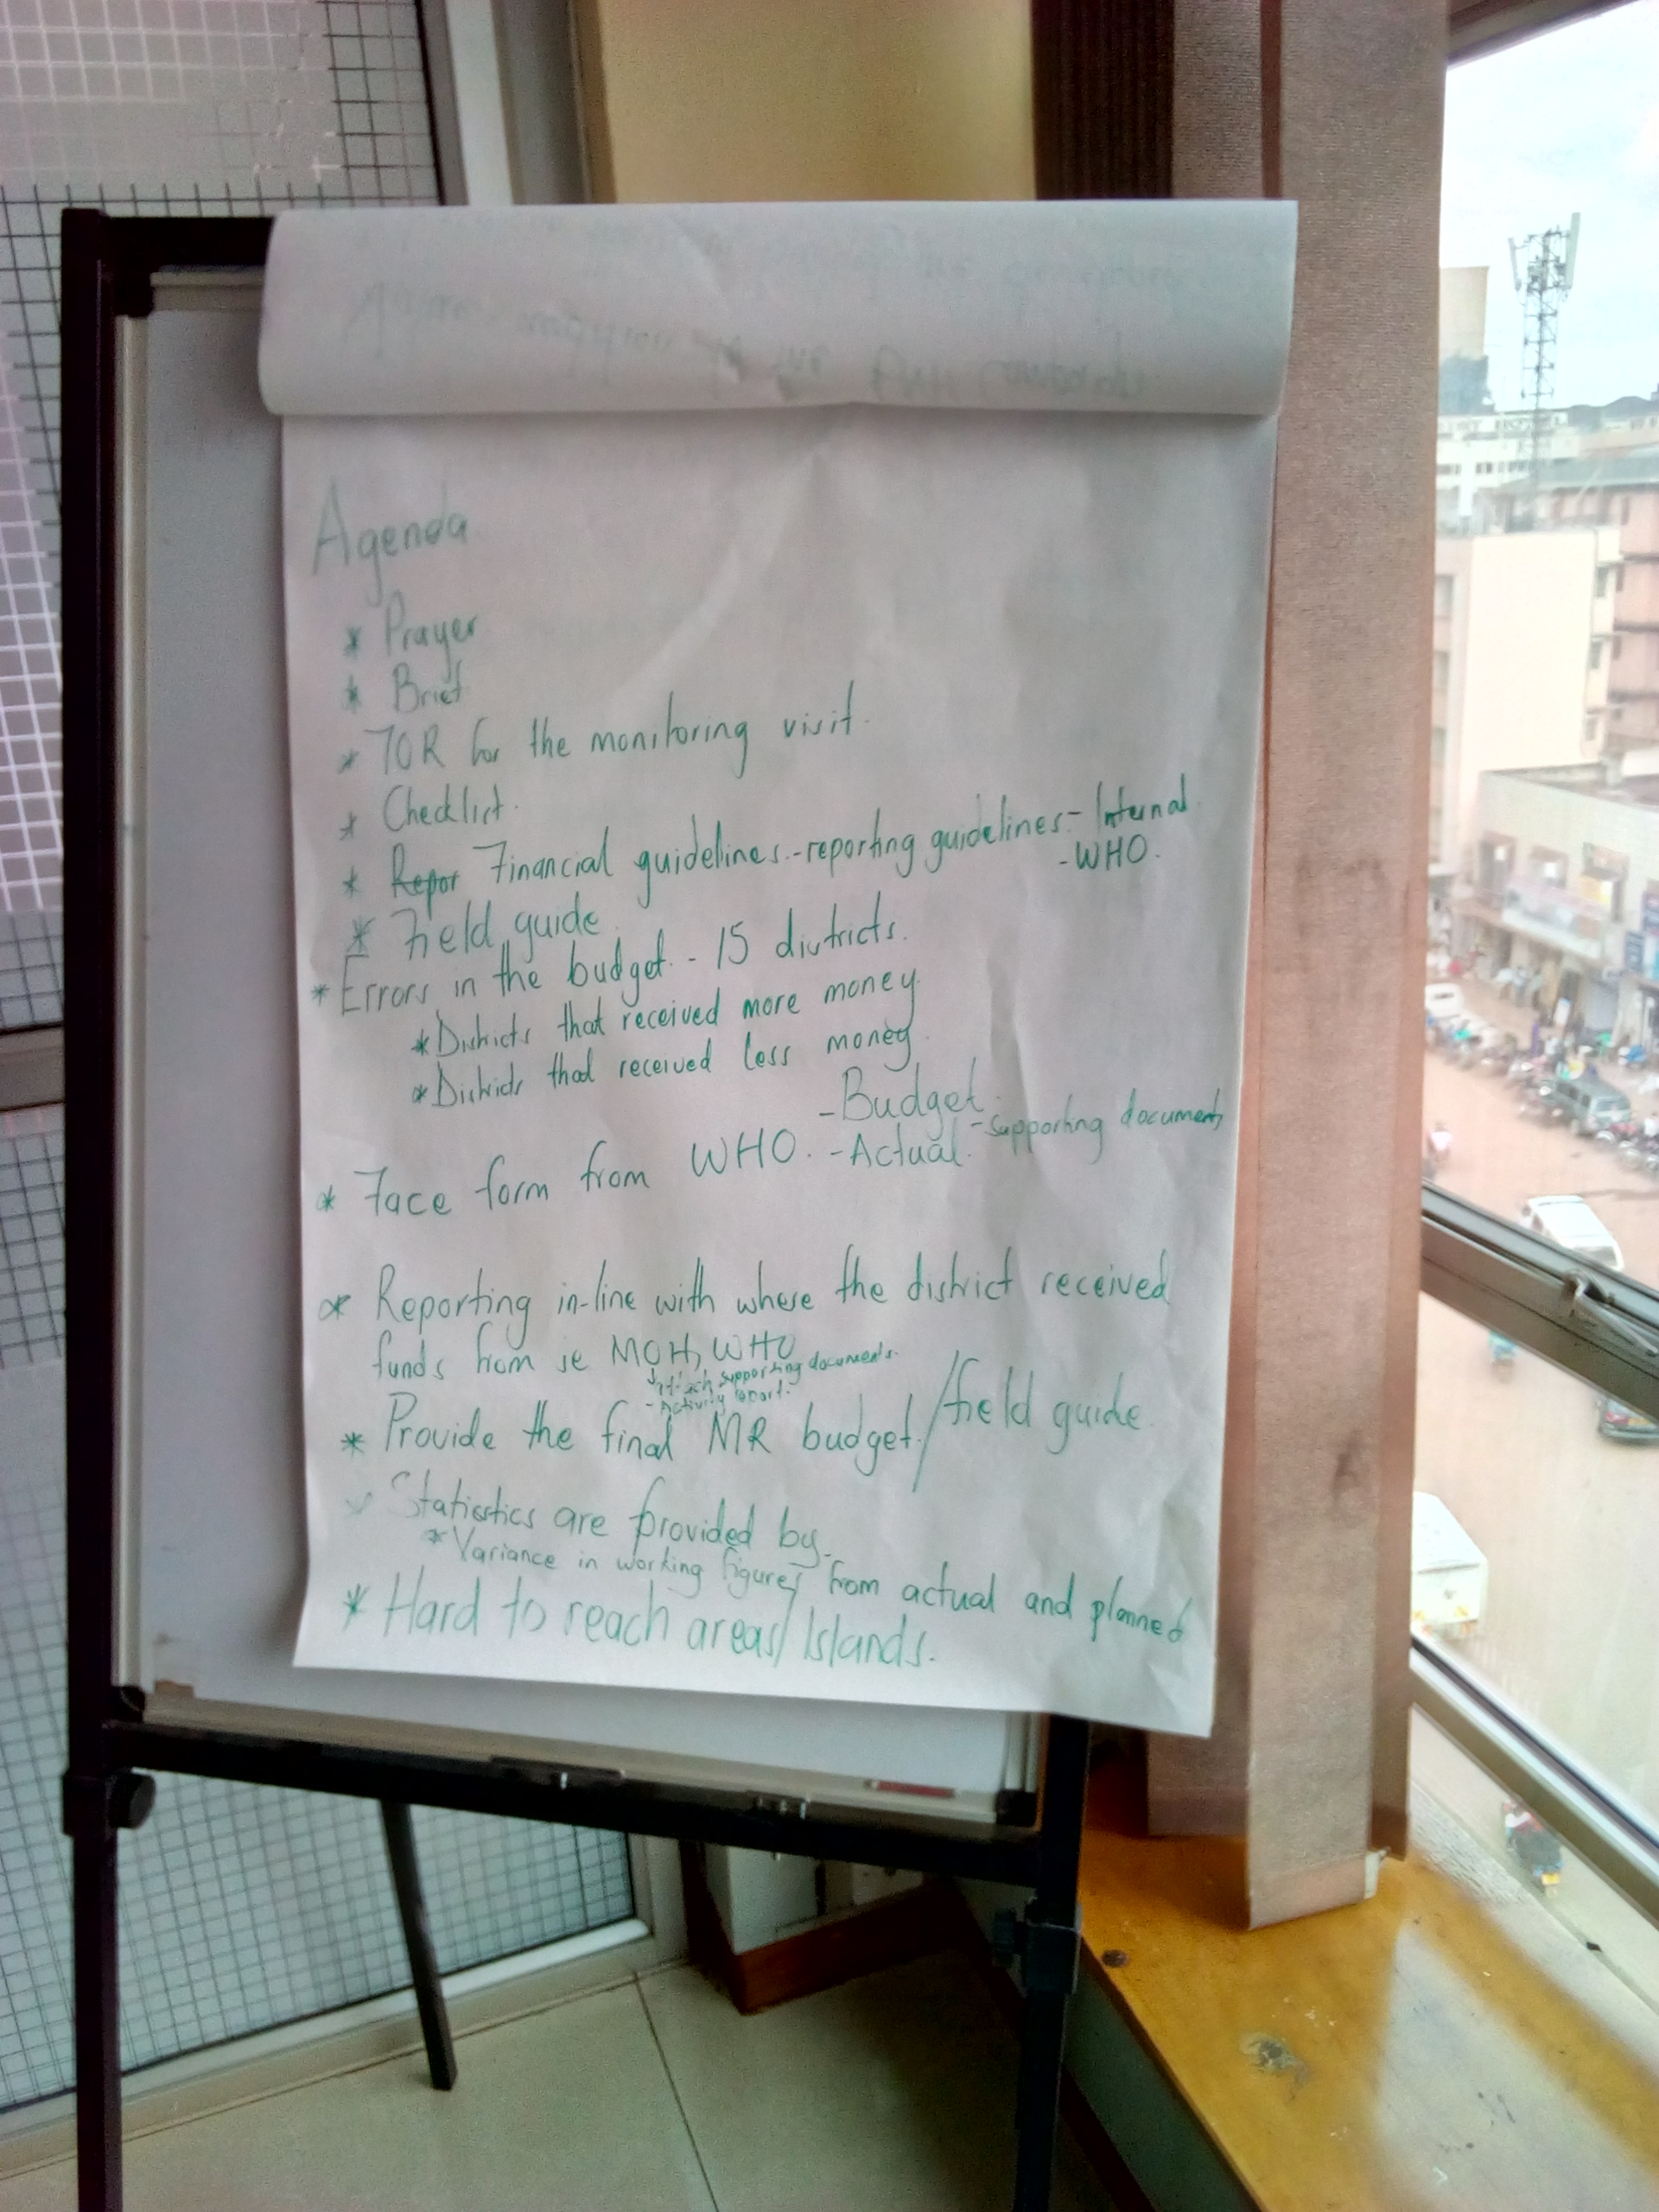 Agenda
* Prayer
* Brief
* TOR for the monitoring visit.
* Checklist.
* Repor Financial guidelines.-reporting guidelines-Internal
-WHO.
* Field guide
* Errors in the budget. - 15 districts.
* Districts that received more money
* Districts that received less money
-Budget.
* Face form from WHO. -Actual. -supporting documents
* Reporting in-line with where the district received
funds from ie MOH, WHO
attach supporting documents.
- Activity report.
* Provide the final MR budget./field guide
Statisstics are provided by
* Variance in working figures from actual and planned
* Hard to reach areas/Islands.